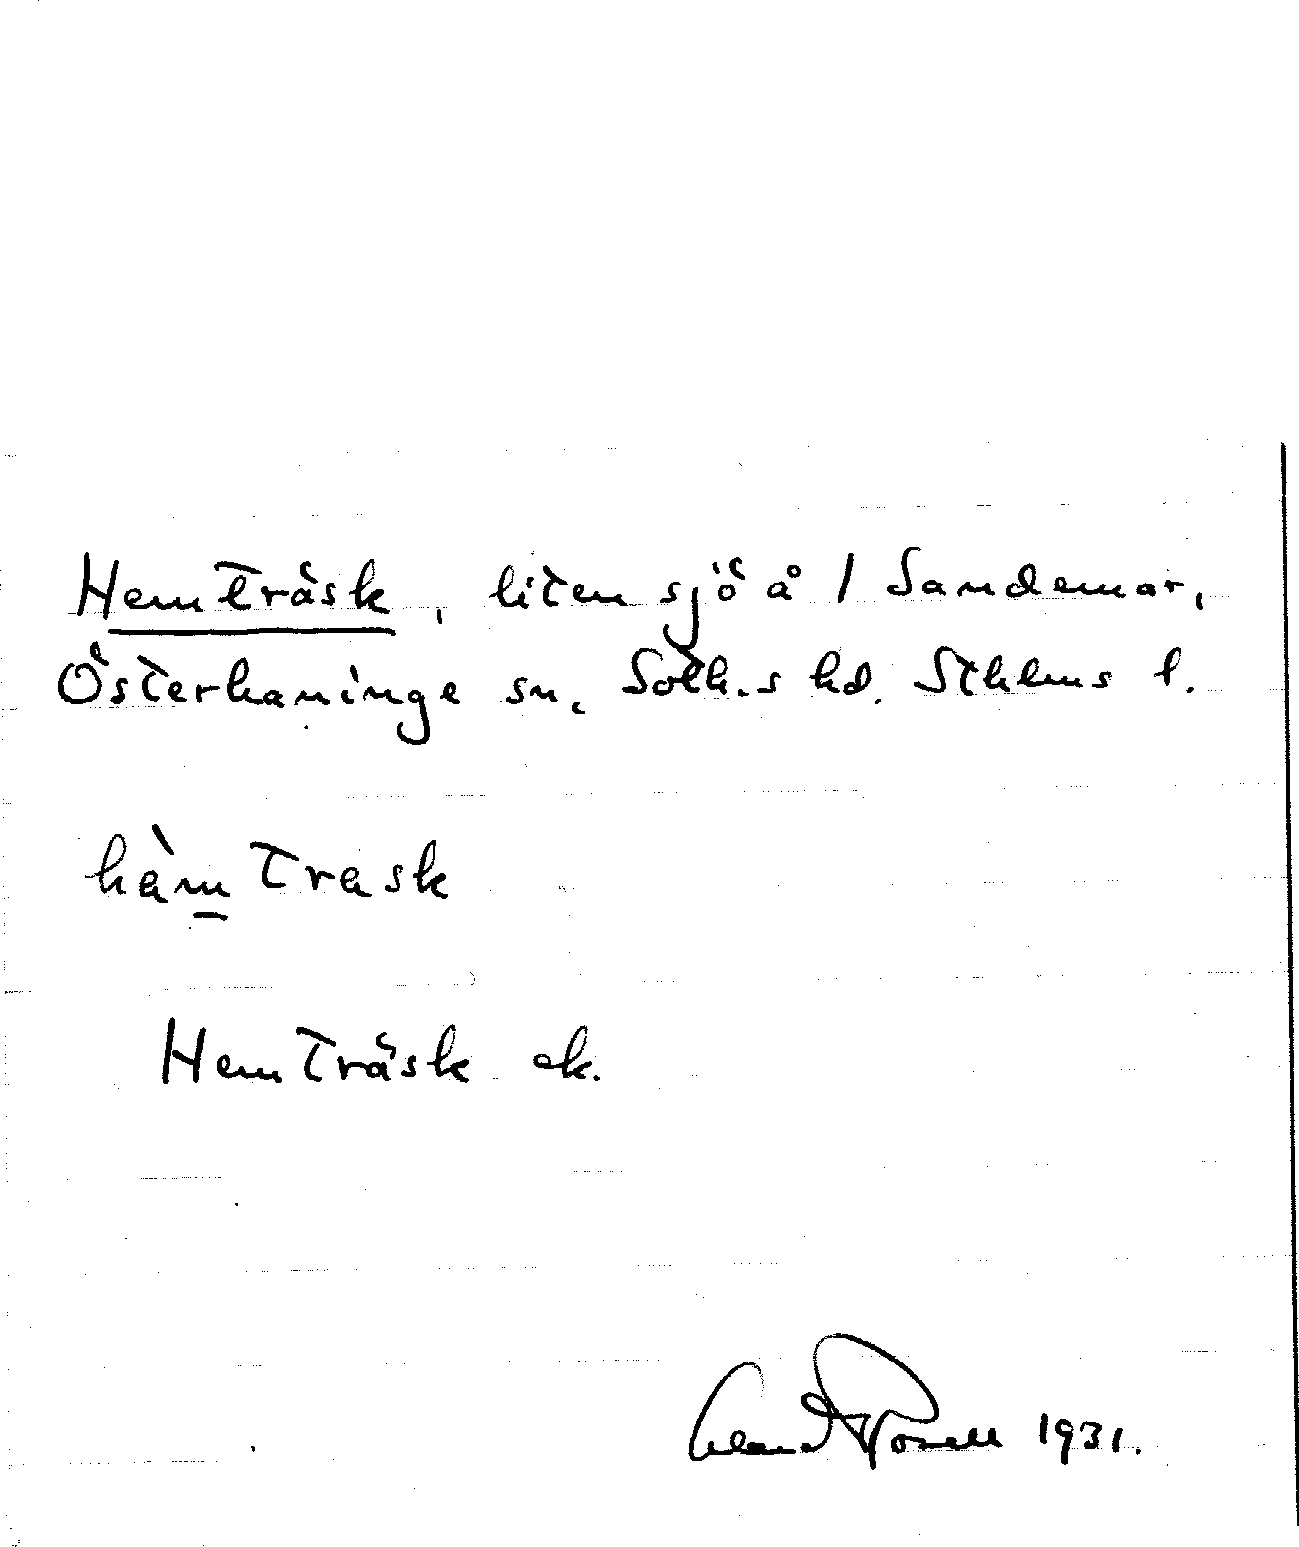 Hemträsk, liten sjö å 1 Sandemar,
Österhaninge sn, Soth.s hd. Sthlms l.
hàm trask
Hemträsk ek.
Erland Rosell 1931.